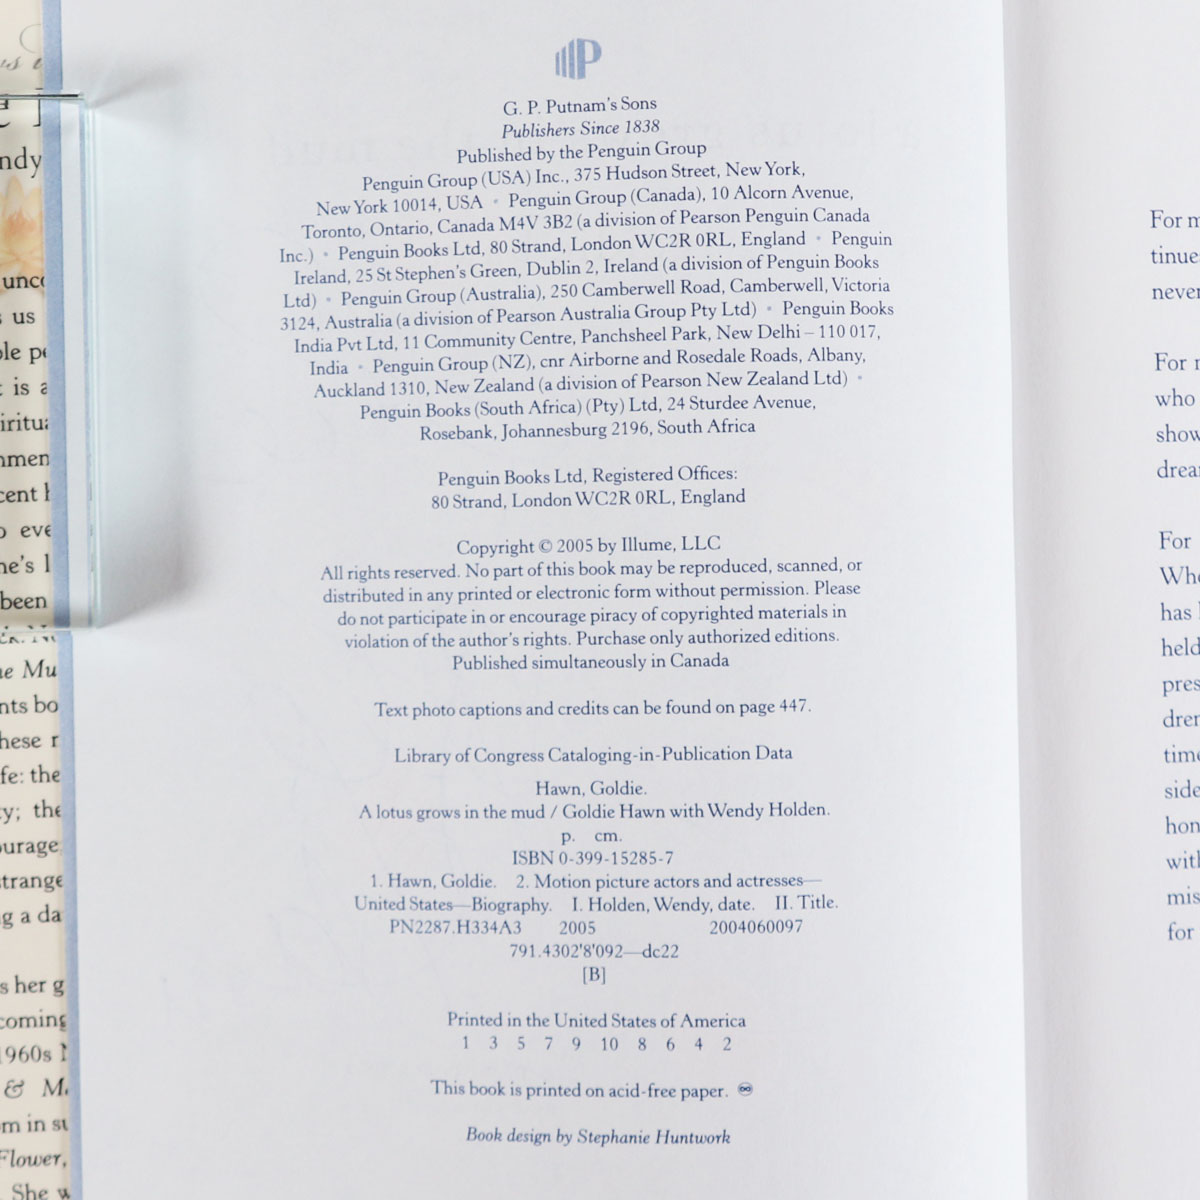 G. P. Putnam's Sons
Publishers Since 1838
Published by the Penguin Group
Penguin Group (USA) Inc., 375 Hudson Street, New York,
New York 10014, USA • Penguin Group (Canada), 10 Alcorn Avenue,
Toronto, Ontario, Canada M4V 3B2 (a division of Pearson Penguin Canada
Inc.) • Penguin Books Ltd, 80 Strand, London WC2R 0RL, England • Penguin
Ireland, 25 St Stephen's Green, Dublin 2, Ireland (a division of Penguin Books
Ltd) • Penguin Group (Australia), 250 Camberwell Road, Camberwell, Victoria
3124, Australia (a division of Pearson Australia Group Pty Ltd) • Penguin Books
India Pvt Ltd, 11 Community Centre, Panchsheel Park, New Delhi – 110 017,
India • Penguin Group (NZ), cnr Airborne and Rosedale Roads, Albany,
Auckland 1310, New Zealand (a division of Pearson New Zealand Ltd) •
Penguin Books (South Africa) (Pty) Ltd, 24 Sturdee Avenue,
Rosebank, Johannesburg 2196, South Africa
Penguin Books Ltd, Registered Offices:
80 Strand, London WC2R 0RL, England
Copyright © 2005 by Illume, LLC
All rights reserved. No part of this book may be reproduced, scanned, or
distributed in any printed or electronic form without permission. Please
do not participate in or encourage piracy of copyrighted materials in
violation of the author's rights. Purchase only authorized editions.
Published simultaneously in Canada
Text photo captions and credits can be found on page 447.
Library of Congress Cataloging-in-Publication Data
Hawn, Goldie.
A lotus grows in the mud / Goldie Hawn with Wendy Holden.
p. cm.
ISBN 0-399-15285-7
1. Hawn, Goldie. 2. Motion picture actors and actresses—
United States—Biography. I. Holden, Wendy, date. II. Title.
PN2287.H334A3 2005 2004060097
791.4302'8'092—dc22
[B]
Printed in the United States of America
1 3 5 7 9 10 8 6 4 2
This book is printed on acid-free paper. ♾
Book design by Stephanie Huntwork
For
tinue
never
For
who
show
For
has
held
time
side
with
for
us
is a
been
these
the
her g
coming
1960s
& M
m in
Flower,
She w